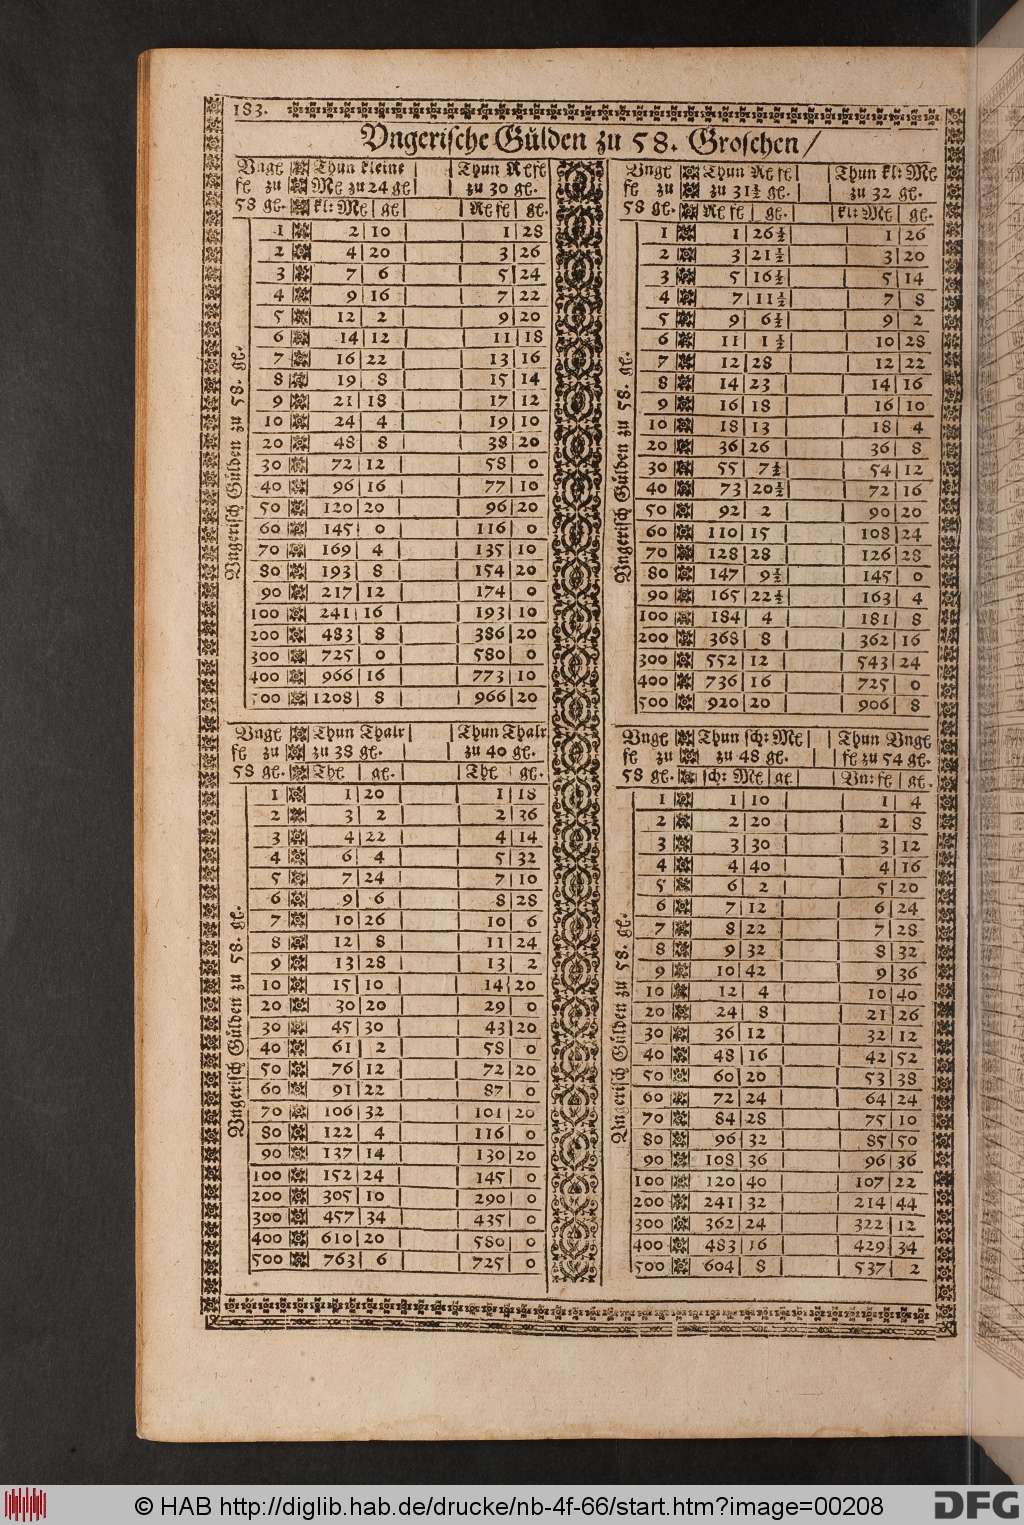 183.
Vngerische Gülden zu 58. Groschen/
Vnge Thun kleine Thun Re fe
fe zu Me zu 24 ge zu 30 ge.
58 ge. kl: Me ge Re fe ge.
1 2 10 1 28
2 4 20 3 26
3 7 6 5 24
4 9 16 7 22
5 12 2 9 20
6 14 12 11 18
7 16 22 13 16
8 19 8 15 14
9 21 18 17 12
10 24 4 19 10
20 48 8 38 20
30 72 12 58 0
40 96 16 77 10
50 120 20 96 20
60 145 0 116 0
70 169 4 135 10
80 193 8 154 20
90 217 12 174 0
100 241 16 193 10
200 483 8 386 20
300 725 0 580 0
400 966 16 773 10
500 1208 8 966 20
Vngerisch Gülden zu 58. ge.
Vnge Thun Re fe Thun kl: Me
fe zu zu 31½ ge. zu 32 ge.
58 ge. Re fe ge. kl: Me ge.
1 1 26½ 1 26
2 3 21½ 3 20
3 5 16½ 5 14
4 7 11½ 7 8
5 9 6½ 9 2
6 11 1½ 10 28
7 12 28 12 22
8 14 23 14 16
9 16 18 16 10
10 18 13 18 4
20 36 26 36 8
30 55 7½ 54 12
40 73 20½ 72 16
50 92 2 90 20
60 110 15 108 24
70 128 28 126 28
80 147 9½ 145 0
90 165 22½ 163 4
100 184 4 181 8
200 368 8 362 16
300 552 12 543 24
400 736 16 725 0
500 920 20 906 8
Vngerisch Gülden zu 58. ge.
Vnge Thun Thalr Thun Thalr
fe zu zu 38 ge. zu 40 ge.
58 ge. The ge. The ge.
1 1 20 1 18
2 3 2 2 36
3 4 22 4 14
4 6 4 5 32
5 7 24 7 10
6 9 6 8 28
7 10 26 10 6
8 12 8 11 24
9 13 28 13 2
10 15 10 14 20
20 30 20 29 0
30 45 30 43 20
40 61 2 58 0
50 76 12 72 20
60 91 22 87 0
70 106 32 101 20
80 122 4 116 0
90 137 14 130 20
100 152 24 145 0
200 305 10 290 0
300 457 34 435 0
400 610 20 580 0
500 763 6 725 0
Vngerisch Gülden zu 58. ge.
Vnge Thun sch: Me Thun Vnge
fe zu zu 48 ge. fe zu 54 ge.
58 ge. sch: Me ge Vn: fe ge.
1 1 10 1 4
2 2 20 2 8
3 3 30 3 12
4 4 40 4 16
5 6 2 5 20
6 7 12 6 24
7 8 22 7 28
8 9 32 8 32
9 10 42 9 36
10 12 4 10 40
20 24 8 21 26
30 36 12 32 12
40 48 16 42 52
50 60 20 53 38
60 72 24 64 24
70 84 28 75 10
80 96 32 85 50
90 108 36 96 36
100 120 40 107 22
200 241 32 214 44
300 362 24 322 12
400 483 16 429 34
500 604 8 537 2
Vngerisch Gülden zu 58. ge.
© HAB http://diglib.hab.de/drucke/nb-4f-66/start.htm?image=00208
DFG